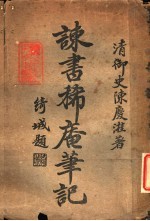 清御史陳慶溎著
諫書稀庵筆記
綺城題